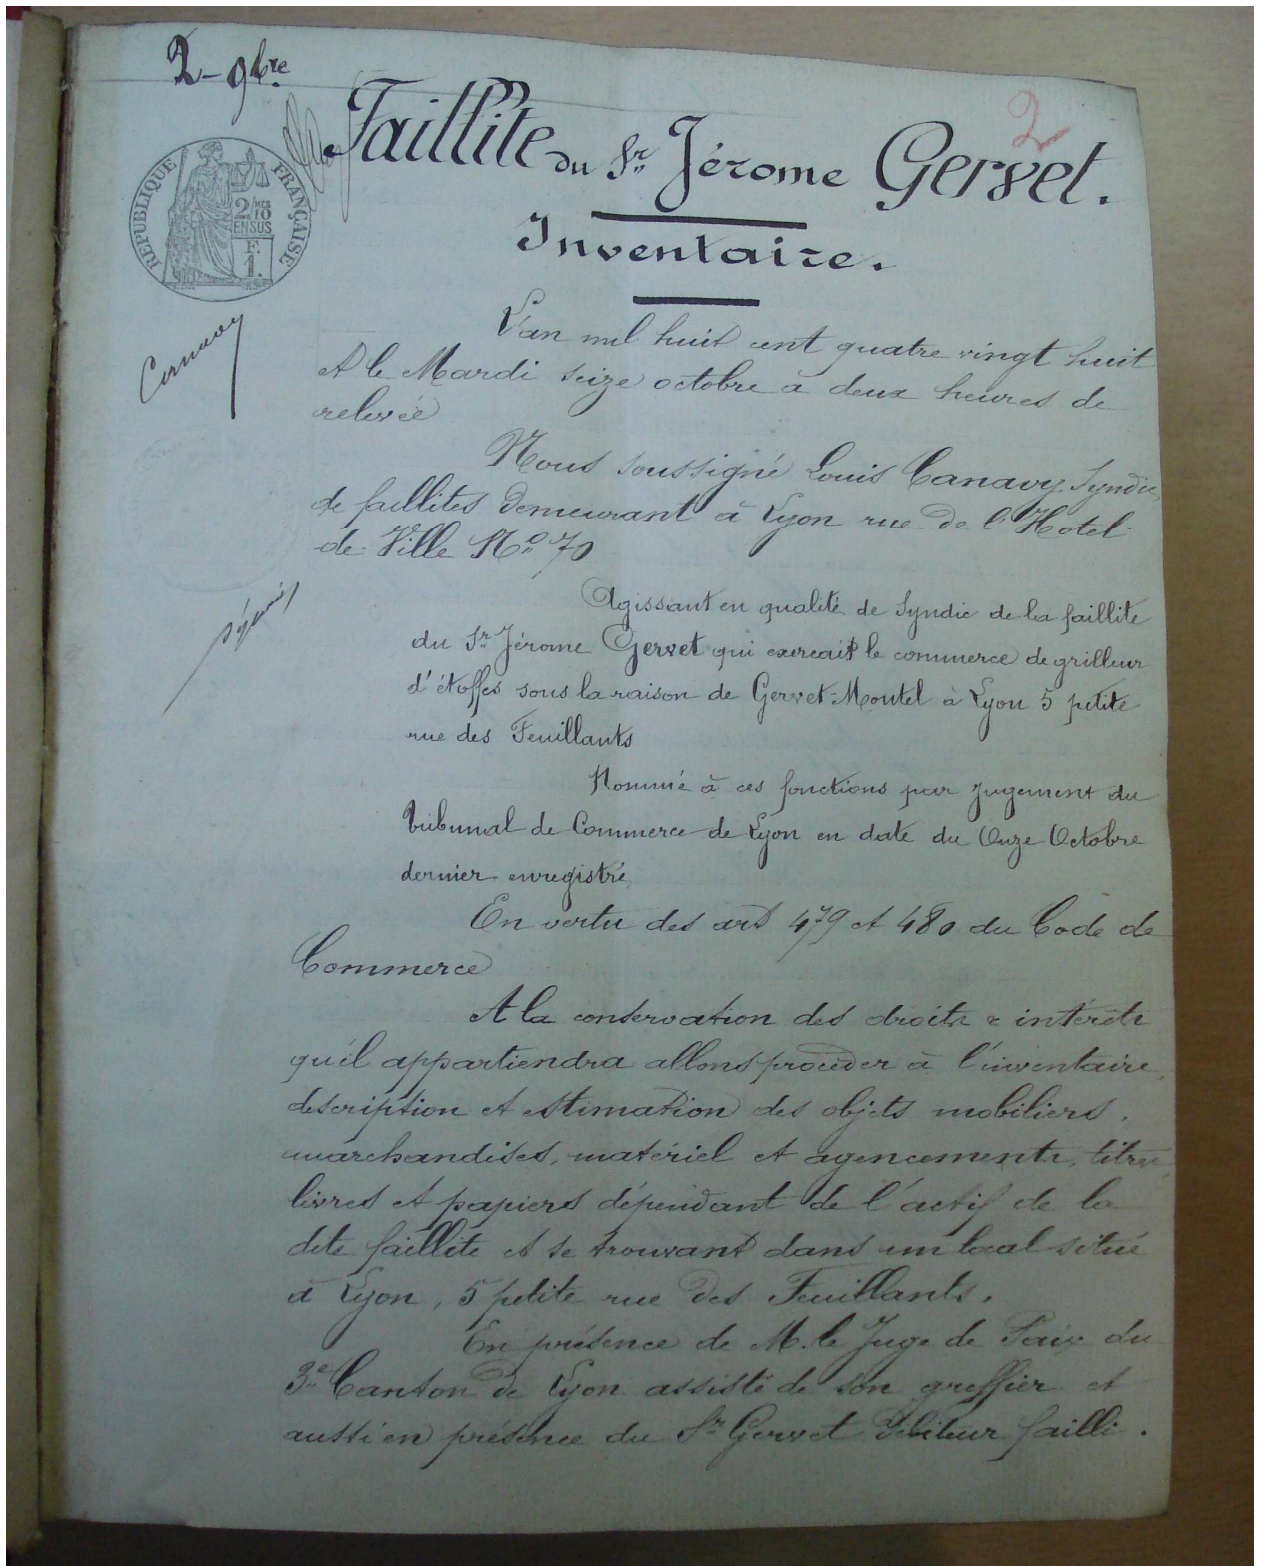 2 - 9bre
2
Faillite du Sr Jérome Gervet.
Inventaire.
RÉPUBLIQUE FRANÇAISE
2/10 MES
EN SUS
F.
1.
L'an mil huit cent quatre vingt huit
et le Mardi seize octobre à deux heures de
relevée
Nous soussigné Louis Canavy, Syndic
de faillites demeurant à Lyon rue de l'Hotel
de Ville No 70
Agissant en qualité de Syndic de la faillite
du Sr Jérome Gervet qui exercait le commerce de grilleur
d'étoffes sous la raison de Gervet-Montel à Lyon 5 petite
rue des Feuillants
Nommé à ces fonctions par jugement du
Tribunal de Commerce de Lyon en date du Onze Octobre
dernier enregistré
En vertu des art 479 et 480 du Code de
Commerce
A la conservation des droits & intérêts
qu'il appartiendra allons procéder à l'inventaire,
description et estimation des objets mobiliers,
marchandises, matériel et agencements, titres,
livres et papiers dépendant de l'actif de la
dite faillite et se trouvant dans un local situé
à Lyon, 5 petite rue des Feuillants.
En présence de M. le Juge de Paix du
3e Canton de Lyon assisté de son greffier et
aussi en présence du Sr Gervet débiteur failli.